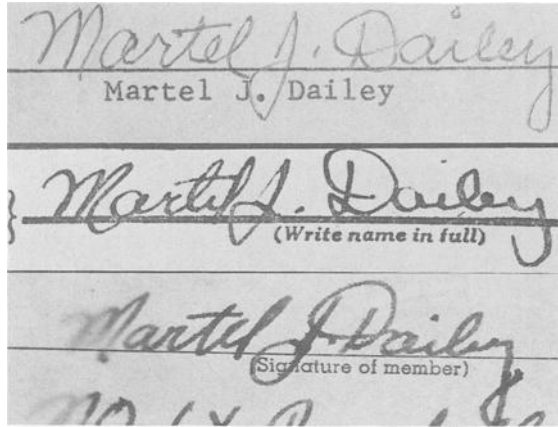 Martel J. Dailey
Martel J. Dailey
Martel J. Dailey
(Write name in full)
Martel J. Dailey
(Signature of member)